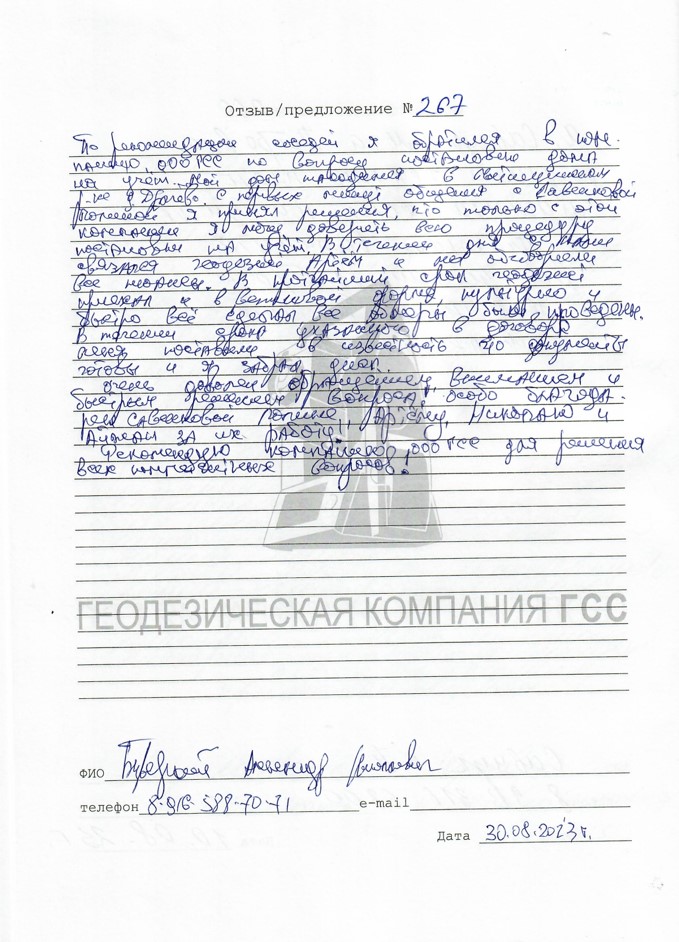 Отзыв/предложение № 267
По рекомендации соседей я обратился в ком-
панию ООО ГСС по вопросу постановки дома
на учёт. Мой дом находится в
р-не д. С первых минут общения с Савенковой
Полиной я принял решение, что только с этой
компанией я могу доверить всю процедуру
постановки на учёт. В течении дня со мной
связался геодезист Артём и мы обговорили
все нюансы. В кратчайший срок геодезист
приехал и в вежливой форме, культурно и
быстро всё сделал все замеры были проведены.
В течении срока указанного в договоре
меня поставили в известность что документы
готовы и я забрал их.
Очень доволен обращением, вниманием и
быстрым решением вопроса, особо благода-
рен Савенковой Полине, Артёму, Николаю и
за их работу!!
Рекомендую компанию ООО ГСС для решения
всех вопросов!
ГЕОДЕЗИЧЕСКАЯ КОМПАНИЯ ГСС
ФИО Александр
телефон 8-916-588-70-71 e-mail
Дата 30.08.2023 г.